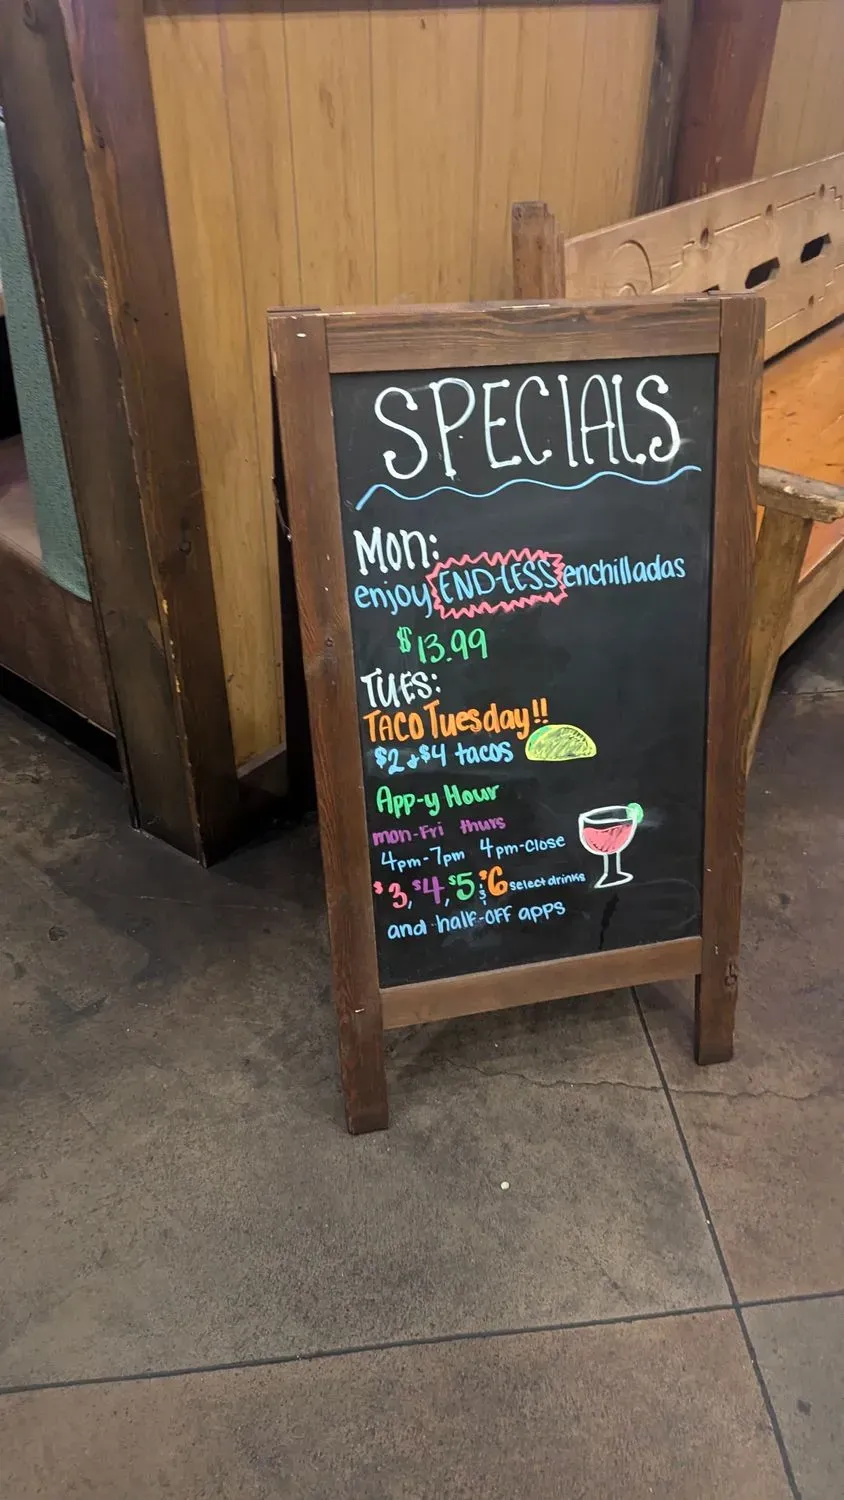 SPECIALS
Mon:
enjoy END-LESS enchilladas
$13.99
TUES:
TACO Tuesday!!
$2 & $4 tacos
App-y Hour
mon-Fri thurs
4pm-7pm 4pm-Close
$3, $4, $5 & $6 select drinks
and half-off apps